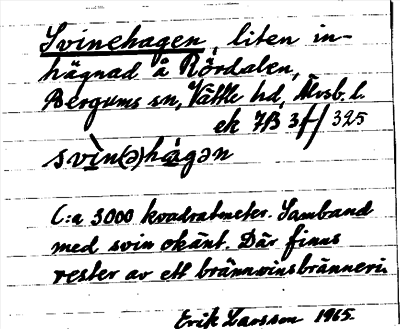 Svinehagen, liten in-
hägnad å Rördalen,
Bergums sn, Vättle hd, Älvsb. l.
ek 7B 3f/325
svìn(ə)hágən
C:a 3000 kvadratmeter. Samband
med svin okänt. Där finns
rester av ett brännvinsbränneri.
Erik Larsson 1965.